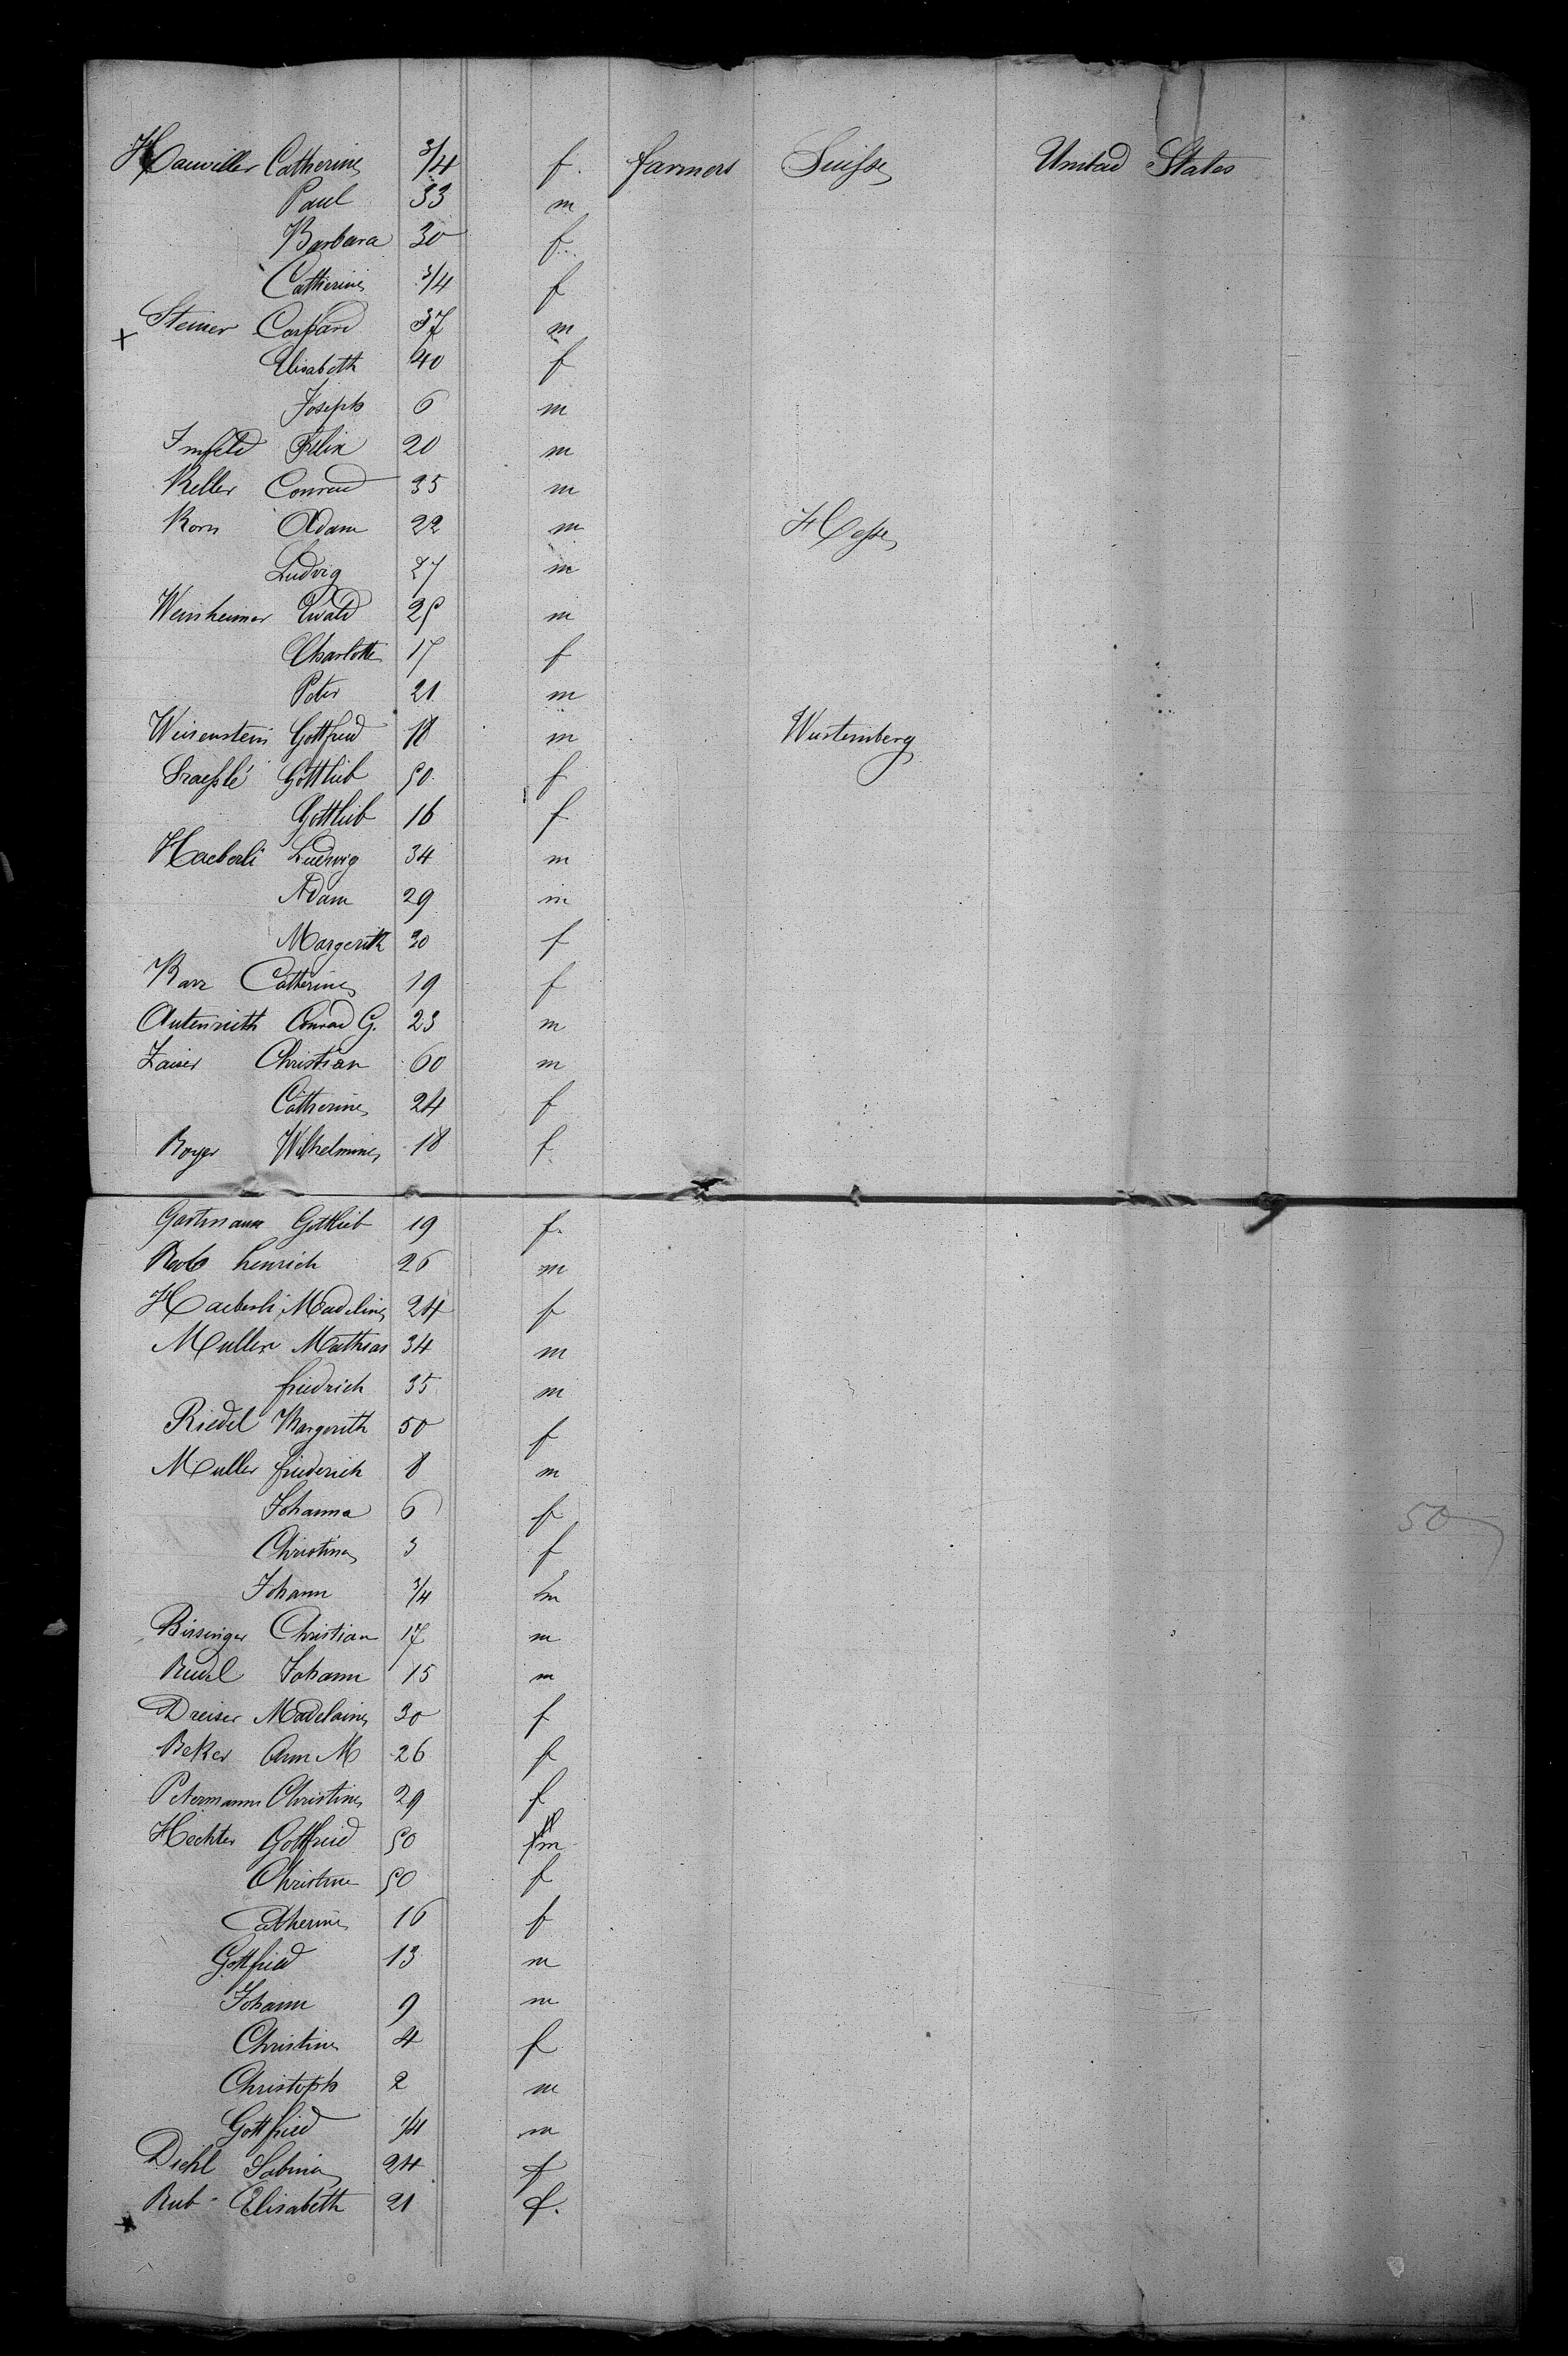 Hanviller Catherine 3/4 f. farmers Suisse United States
Paul 33 m
Barbara 30 f
Catherine 3/4 f
+ Steiner Caspard 37 m
Elisabeth 40 f
Joseph 6 m
Imfeld Felix 20 m
Keller Conrad 35 m
Korn Adam 22 m Hesse
Ludvig 27 m
Weinheimer Ewald 25 m
Charlotte 17 f
Peter 21 m
Weisenstein Gottfried 18 m Wurtemberg
Gottlieb 50 f
Gottlieb 16 f
Haeberli Ludwig 34 m
Adam 29 m
Margerith 20 f
Karr Catherine 19 f
Autenrieth Conrad G. 23 m
Zaiser Christian 60 m
Catherine 24 f
Boyer Wilhelmine 18 f
Gartmann Gottlieb 19 f.
henrich 26 m
Haeberli Madeline 24 f
Muller Mathias 34 m
friedrich 35 m
Riedel Margerith 50 f
Muller friederich 8 m
Johanna 6 f
50
Christina 3 f
Johann 3/4 m
Bissinger Christian 17 m
Johann 15 m
Dreiser Madelaine 30 f
Beker Ann M 26 f
Petermann Christine 29 f
Hechter Gottfried 50 m
Christine 50 f
Catherine 16 f
Gottfried 13 m
Johann 9 m
Christine 4 f
Christoph 2 m
Gottfried 1/4 m
Diehl Sabina 24 f
Rub Elisabeth 21 f.